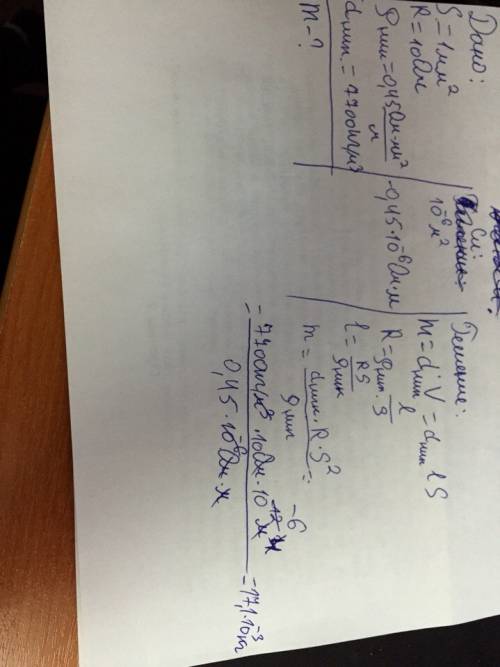 Дано:
S = 1 мм²
R = 10 Ом
ρник = 0,45 Ом·мм²/м
dник = 7700 кг/м³
m - ?
Си:
10⁻⁶ м²
0,45·10⁻⁶ Ом·м
Решение:
m = dник·V = dник l S
R = ρник · l/S
l = RS/ρник
m = dник·R·S²/ρник =
= 7700 кг/м³ · 10 Ом · 10⁻¹² м⁴ / 0,45·10⁻⁶ Ом·м = 17,1·10⁻³ кг